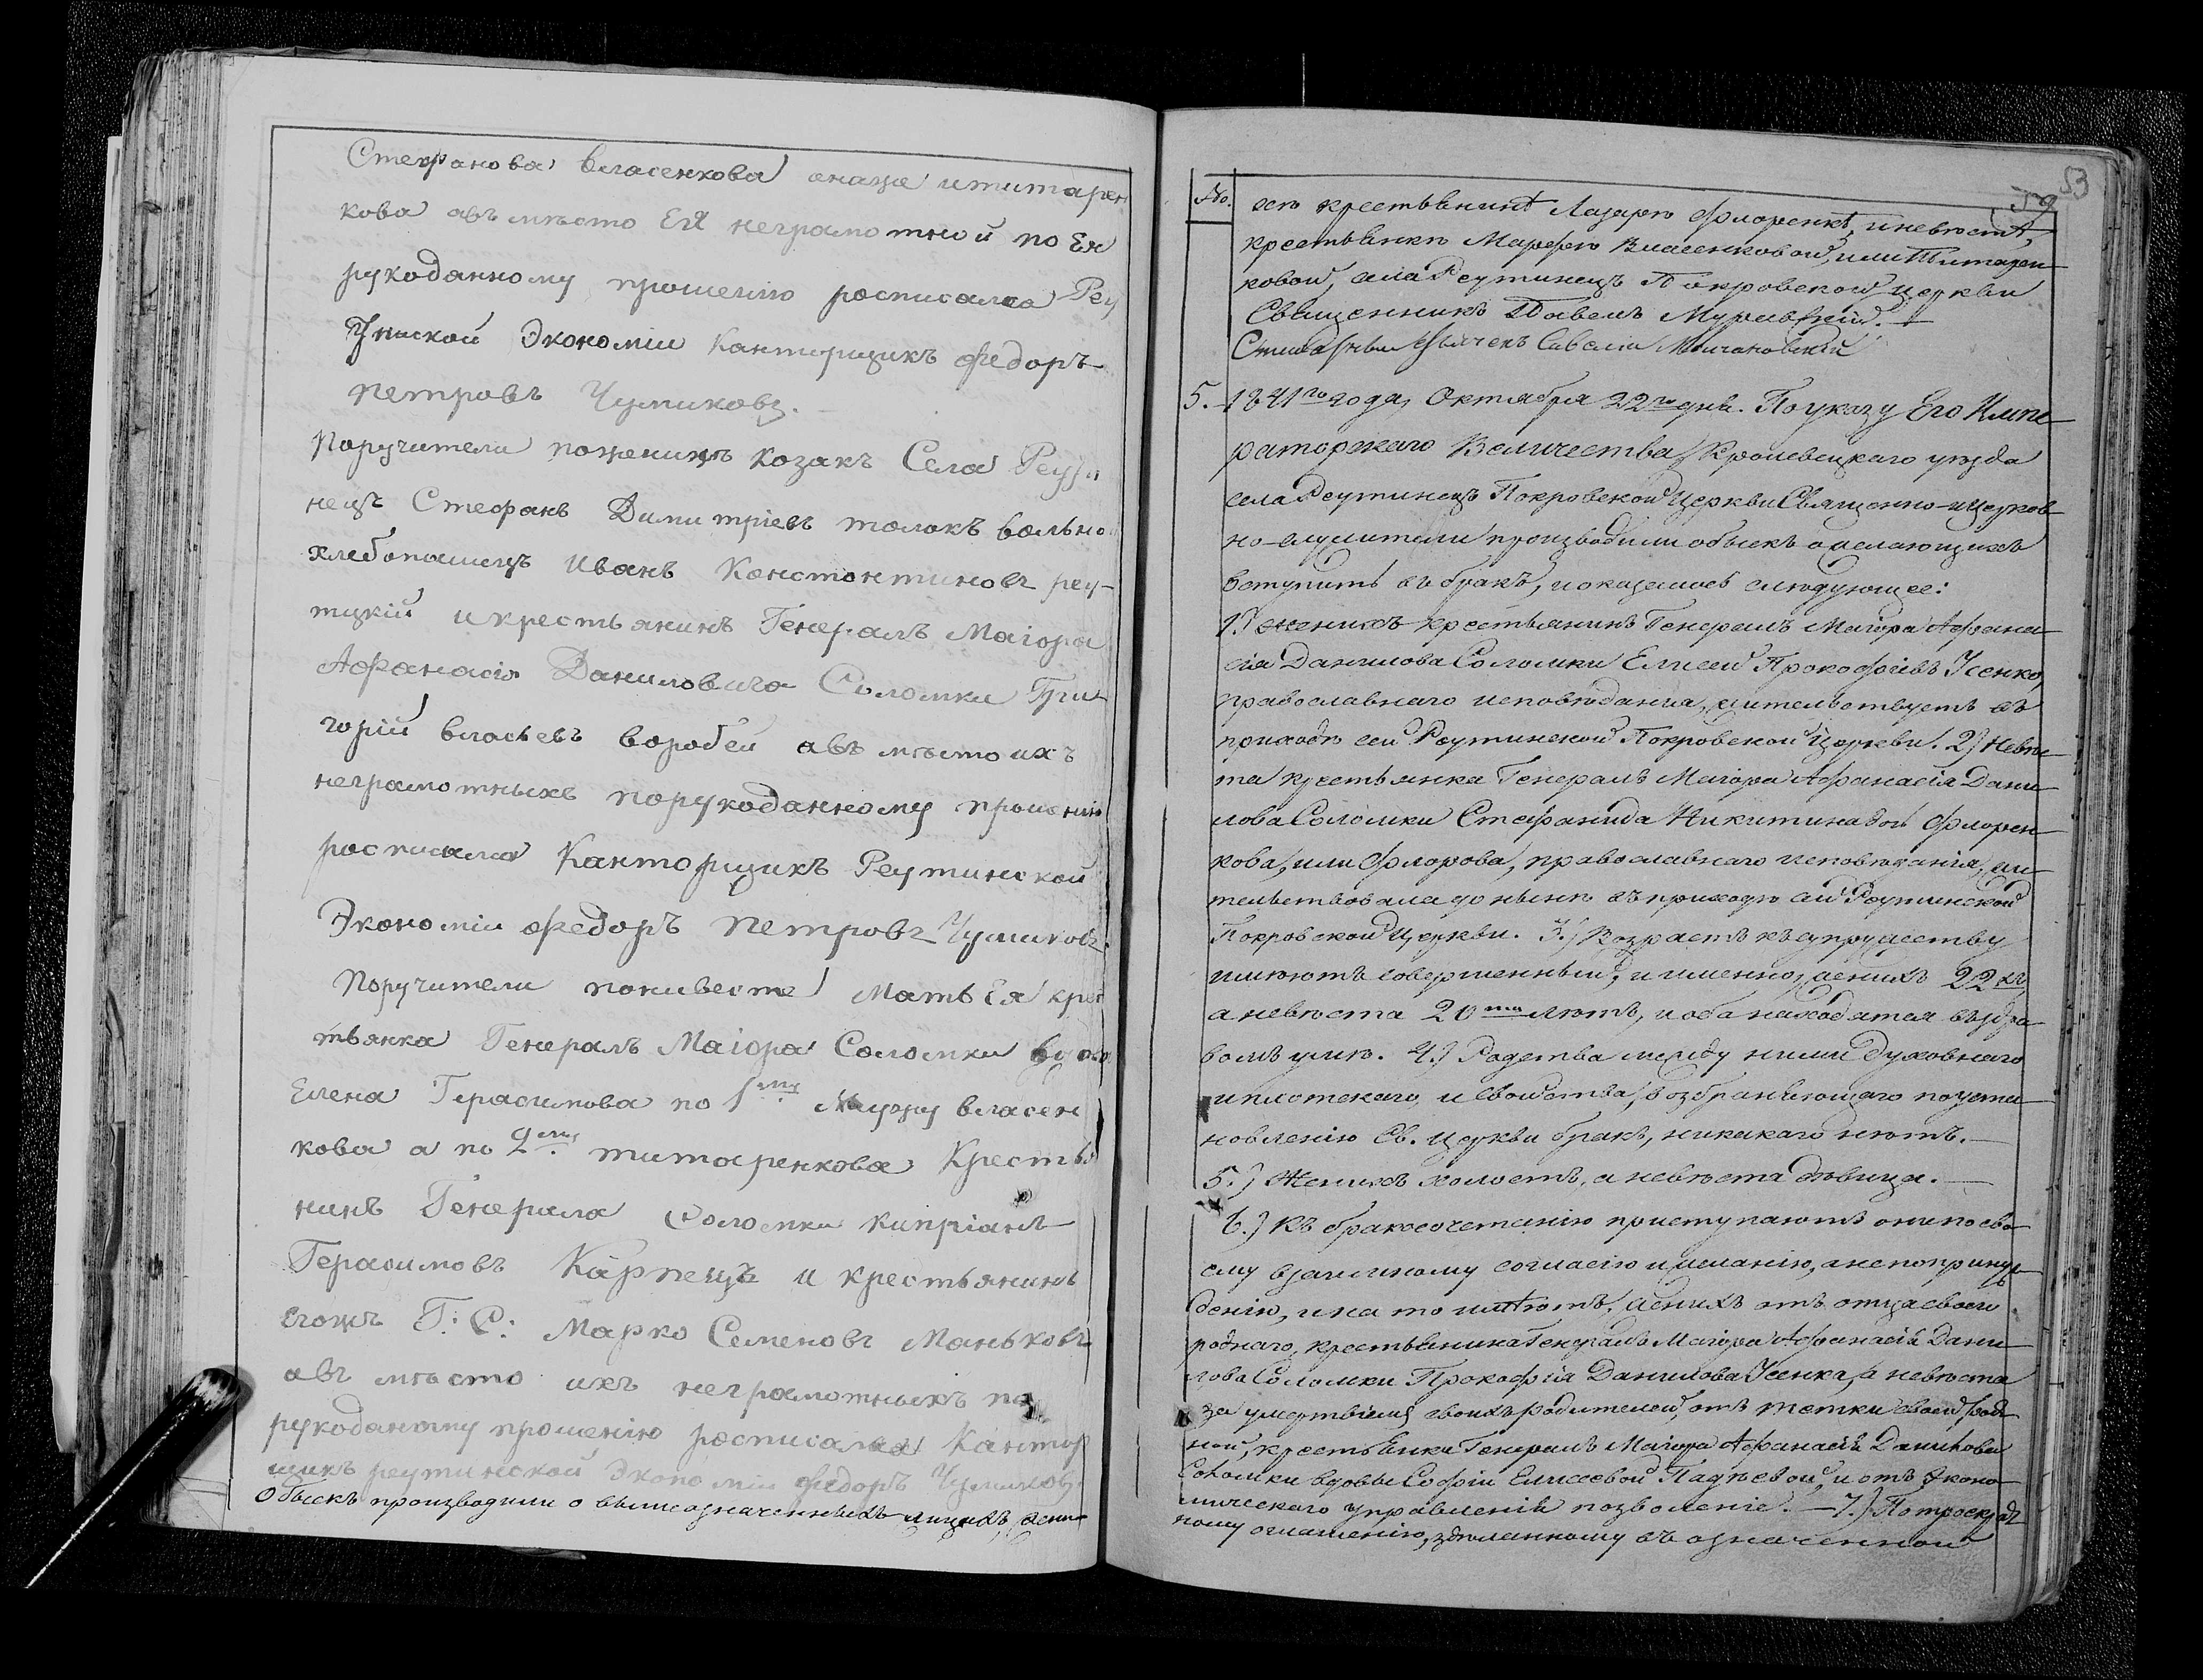 Стефанова Власенкова аначе ититарен
кова авъ мѣсто Ея неграмотной по Ея
рукоданному прошенію росписался Реу
тинской Экономіи Канторщикъ Федоръ
Петровъ Чумиковъ.
Поручители поженихѣ козакъ Села Реути
нецъ Стефанъ Димитріевъ толокъ вольно
хлебопашецъ Иванъ Константиновъ реу-
тцкій и крестьянинъ Генералъ Маіора
Афанасія Даниловича Соломки Гри
горій Власьевъ Воробей авъ мѣсто ихъ
неграмотныхъ порукоданному прошенію
росписался Канторщикъ Реутинской
Экономіи Федоръ Петровъ Чумиковъ.
Поручители поневесте Мать Ея крес
тьянка Генералъ Маіора Соломки вдова
Елена Герасимова по 1му Мужу Власен
кова а по 2му титаренкова Крестья
нинъ Генерала Соломки Кипріанъ
Герасимовъ Карпецъ и крестьянинъ
Егожъ Г: С: Марко Семеновъ Маньковъ
авъ мѣсто ихъ неграмотныхъ по
рукоданному прошенію росписался Кантор
щикъ реутинской Экономіи Федоръ Чумиковъ.
Обыскъ производили о вышеозначенныхъ лицахъ, жени-
№.
53
хѣ крестьянинѣ Лазарѣ Флоренкѣ, и невѣстѣ,
крестьянкѣ Марфѣ Власенковой, или Титарен-
ковой, села Реутинецъ Покровской церкви
Священникъ Павелъ Муравскій.
Дьячекъ Савелій Молчановскій
5. 1841го года, Октября 22го дня. По указу Его Импе-
раторскаго Величества, Кролевецкаго уѣзда
села Реутинецъ Покровской Церкви Священно-и церков-
но-служители производили обыскъ о желающихъ
вступить въ бракъ, и оказалось слѣдующее:
1.) Женихъ крестьянинъ Генералъ Маіора Афана-
сія Данилова Соломки Елисей Прокофіевъ Усенко,
православнаго исповѣданія, жительствуетъ въ
приходѣ сей Реутинской Покровской Церкви. 2.) Невѣс-
та крестьянка Генералъ Маіора Афанасія Дани-
лова Соломки Стефанида Никитина дочь Флорен-
кова, или Флорова, православнаго исповѣданія, жи-
тельствовала донынѣ въ приходѣ сей Реутинской
Покровской Церкви. 3.) Возрастъ къ супружеству
имѣютъ совершенный, и именно, женихъ 22хъ,
а невѣста 20ти лѣтъ, и оба находятся въ здра-
вомъ умѣ. 4.) Родства между ними духовнаго
и плотскаго, и свойства, возбраняющаго по уста-
новленію Св. Церкви бракъ, никакаго нѣтъ.
5.) Женихъ холостъ, а невѣста дѣвица.
6.) Къ бракосочетанію приступаютъ они по сво-
ему взаимному согласію и желанію, а не по принуж-
денію, и на то имѣютъ, женихъ отъ отца своего
роднаго, крестьянина Генералъ Маіора Афанасія Дани-
лова Соломки Прокофія Данилова Усенка, а невѣста
за умертвіемъ своихъ родителей, отъ тетки своей род-
ной, крестьянки Генералъ Маіора Афанасія Данилова
Соломки вдовы Софіи Елисеевой и отъ Эконо-
мическаго управленія позволеніе. 7.) По троекрат-
ному оглашенію, зделанному въ означенной